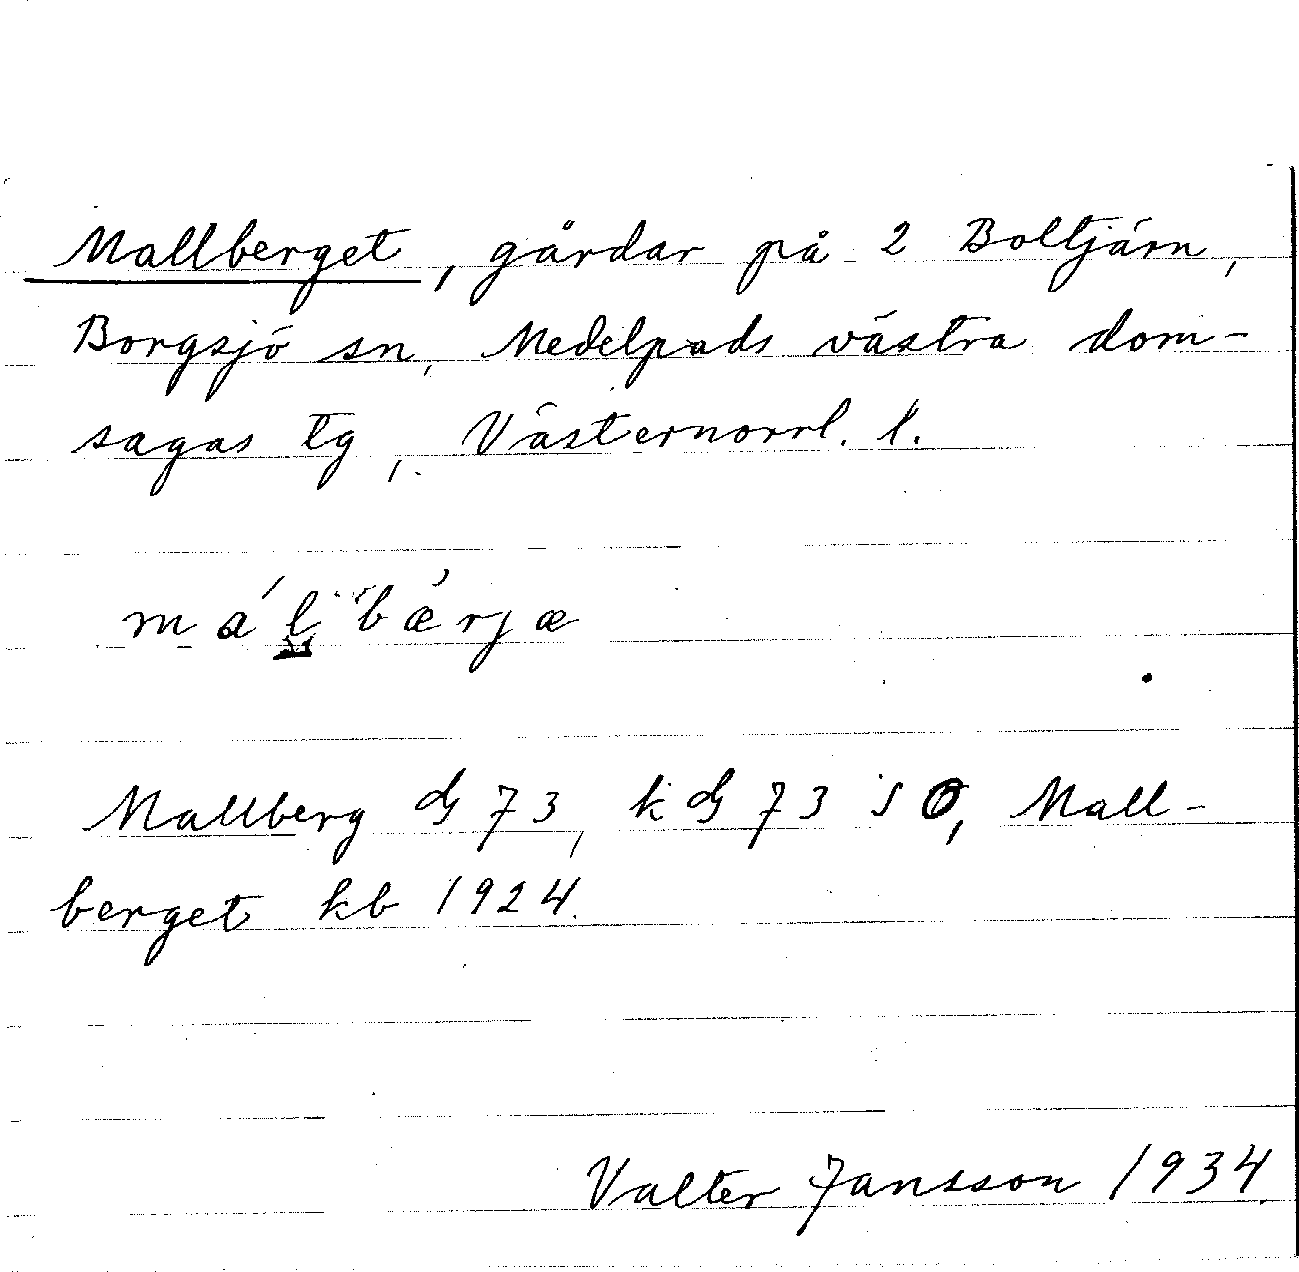 Mallberget, gårdar på 2 Boltjärn,
Borgsjö sn, Medelpads västra dom-
sagas tg, Västernorrl. l.
máḷbǽrjæ
Mallberg G 73, k G 73 SO, Mall-
berget kb 1924.
Valter Jansson 1934.